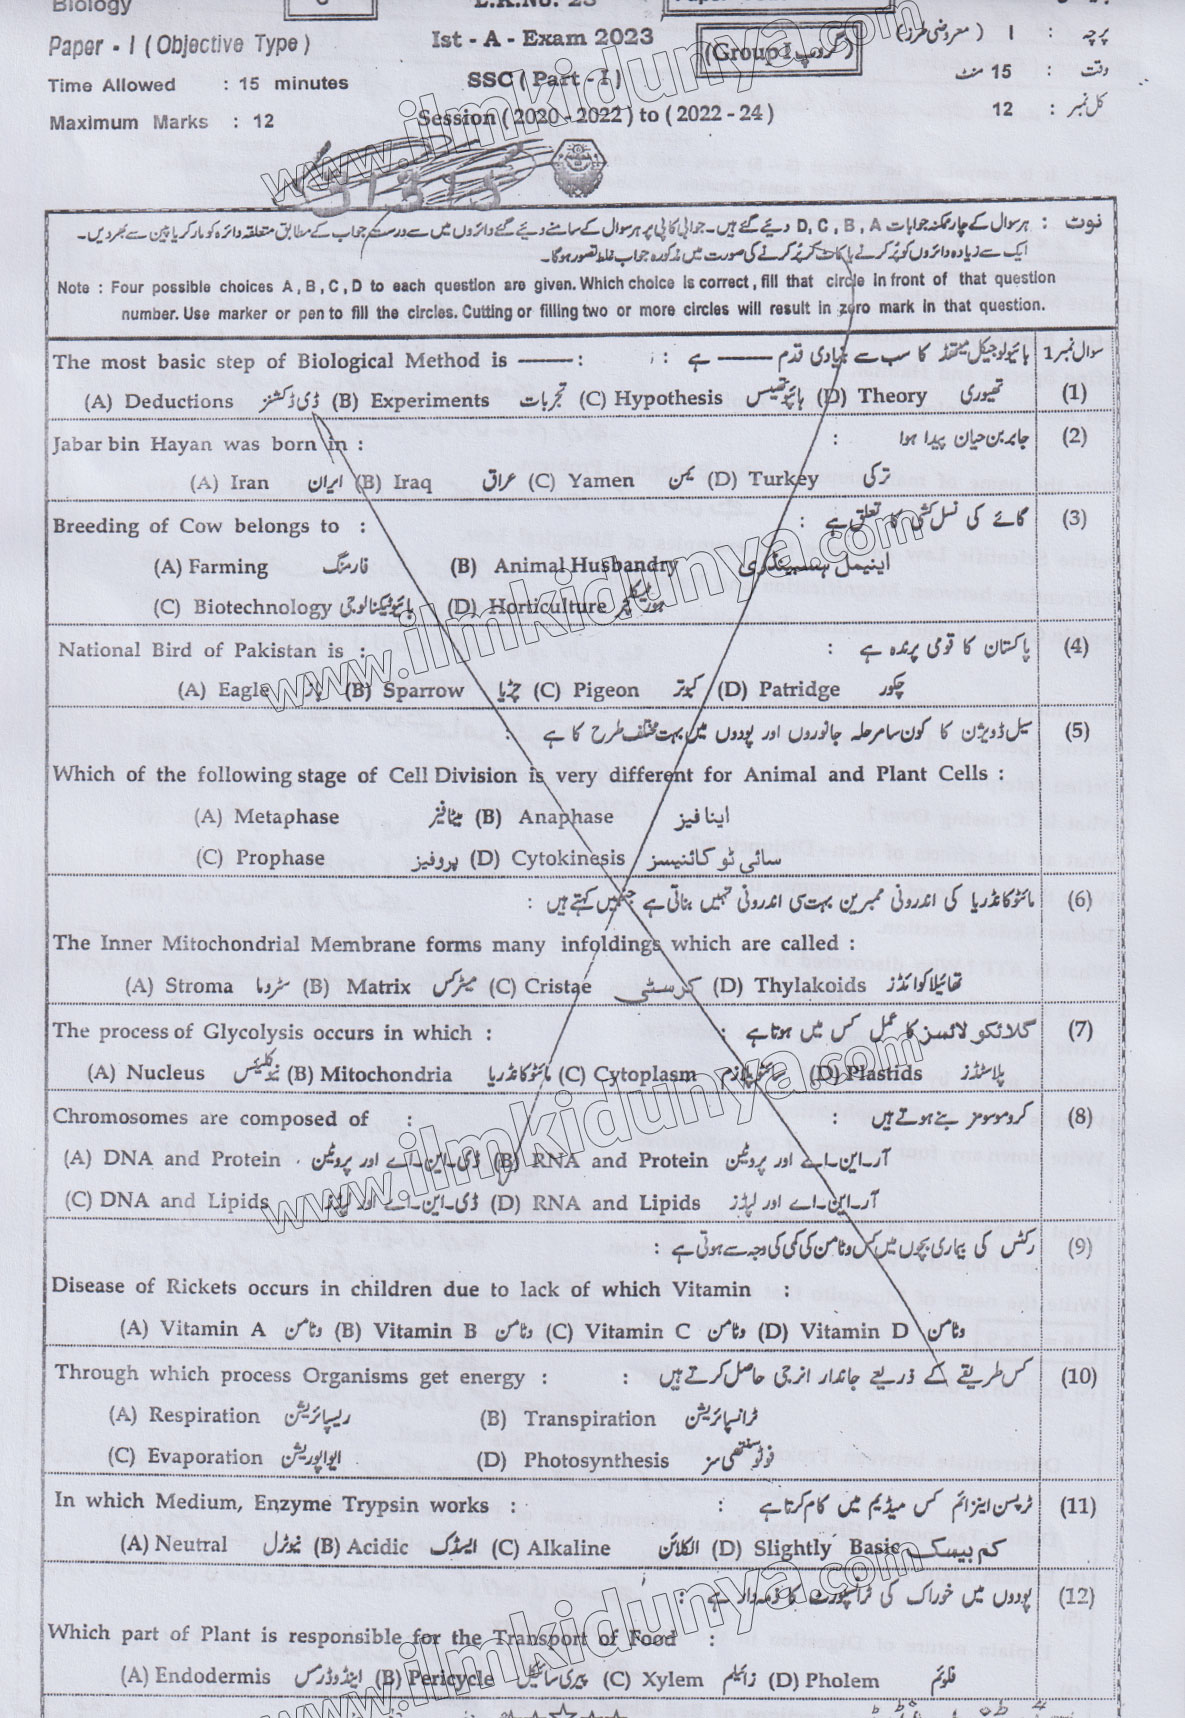 Biology
Paper - I ( Objective Type )
Ist - A - Exam 2023
(Group I گروپ)
پرچہ : I ( معروضی طرز )
Time Allowed : 15 minutes
SSC ( Part - I )
وقت : 15 منٹ
Maximum Marks : 12
Session ( 2020 - 2022 ) to ( 2022 - 24 )
کل نمبر : 12
نوٹ : ہر سوال کے چار ممکنہ جوابات D, C, B, A دیئے گئے ہیں۔ جوابی کاپی پر ہر سوال کے سامنے دیئے گئے دائروں میں سے درست جواب کے مطابق متعلقہ دائرہ کو مارکر یا پین سے بھر دیں۔
ایک سے زیادہ دائروں کو پُر کرنے یا کاٹ کر پُر کرنے کی صورت میں مذکورہ جواب غلط تصور ہوگا۔
Note : Four possible choices A , B , C , D to each question are given. Which choice is correct , fill that circle in front of that question
number. Use marker or pen to fill the circles. Cutting or filling two or more circles will result in zero mark in that question.
سوال نمبر 1 بائیولوجیکل میتھڈ کا سب سے بنیادی قدم ------ ہے :
The most basic step of Biological Method is ------ :
(1) (A) Deductions ڈی ڈکشنز (B) Experiments تجربات (C) Hypothesis ہائپوتھیسس (D) Theory تھیوری
Jabar bin Hayan was born in : جابر بن حیان پیدا ہوا : (2)
(A) Iran ایران (B) Iraq عراق (C) Yamen یمن (D) Turkey ترکی
Breeding of Cow belongs to : گائے کی نسل کشی کا تعلق ہے : (3)
(A) Farming فارمنگ (B) Animal Husbandry اینیمل ہسبینڈری
(C) Biotechnology بائیوٹیکنالوجی (D) Horticulture ہورٹیکلچر
National Bird of Pakistan is : پاکستان کا قومی پرندہ ہے : (4)
(A) Eagle باز (B) Sparrow چڑیا (C) Pigeon کبوتر (D) Patridge چکور
سیل ڈویژن کا کون سا مرحلہ جانوروں اور پودوں میں بہت مختلف طرح کا ہے : (5)
Which of the following stage of Cell Division is very different for Animal and Plant Cells :
(A) Metaphase میٹافیز (B) Anaphase اینا فیز
(C) Prophase پروفیز (D) Cytokinesis سائی ٹو کائنیسز
مائٹوکانڈریا کی اندرونی ممبرین بہت سی اندرونی تہیں بناتی ہے جنہیں کہتے ہیں : (6)
The Inner Mitochondrial Membrane forms many infoldings which are called :
(A) Stroma سٹروما (B) Matrix میٹرکس (C) Cristae کرسٹی (D) Thylakoids تھائیلاکوائڈز
The process of Glycolysis occurs in which : گلائکولائسز کا عمل کس میں ہوتا ہے : (7)
(A) Nucleus نیوکلیئس (B) Mitochondria مائٹوکانڈریا (C) Cytoplasm سائٹوپلازم (D) Plastids پلاسٹڈز
Chromosomes are composed of : کروموسومز بنے ہوتے ہیں : (8)
(A) DNA and Protein ڈی۔این۔اے اور پروٹین (B) RNA and Protein آر۔این۔اے اور پروٹین
(C) DNA and Lipids ڈی۔این۔اے اور لپڈز (D) RNA and Lipids آر۔این۔اے اور لپڈز
رکٹس کی بیماری بچوں میں کس وٹامن کی کمی کی وجہ سے ہوتی ہے : (9)
Disease of Rickets occurs in children due to lack of which Vitamin :
(A) Vitamin A وٹامن (B) Vitamin B وٹامن (C) Vitamin C وٹامن (D) Vitamin D وٹامن
Through which process Organisms get energy : کس طریقے کے ذریعے جاندار انرجی حاصل کرتے ہیں : (10)
(A) Respiration ریسپائریشن (B) Transpiration ٹرانسپائریشن
(C) Evaporation ایواپوریشن (D) Photosynthesis فوٹوسنتھی سز
In which Medium, Enzyme Trypsin works : ٹرپسن اینزائم کس میڈیم میں کام کرتا ہے : (11)
(A) Neutral نیوٹرل (B) Acidic ایسڈک (C) Alkaline الکلائن (D) Slightly Basic کم بیسک
پودوں میں خوراک کی ٹرانسپورٹ کا ذمہ دار ہے : (12)
Which part of Plant is responsible for the Transport of Food :
(A) Endodermis اینڈوڈرمس (B) Pericycle پیری سائیکل (C) Xylem زائیلم (D) Pholem فلوئم
www.ilmkidunya.com
www.ilmkidunya.com
www.ilmkidunya.com
www.ilmkidunya.com